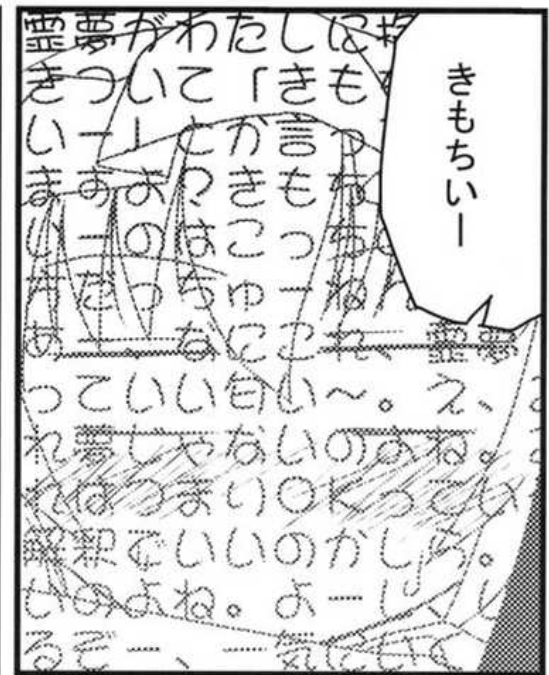 きもちいー
霊夢がわたしに抱
きついて「きもち
いー」とか言っ
ますよ？きもち
いーのはこっち
だっちゅーね
あー、なにこれ、霊夢
っていい匂い～。え、こ
れ夢じゃないのよね。こ
れはつまりOKってい
解釈でいいのかしら。
いのよね。よーしい
るぞー、一気にいく